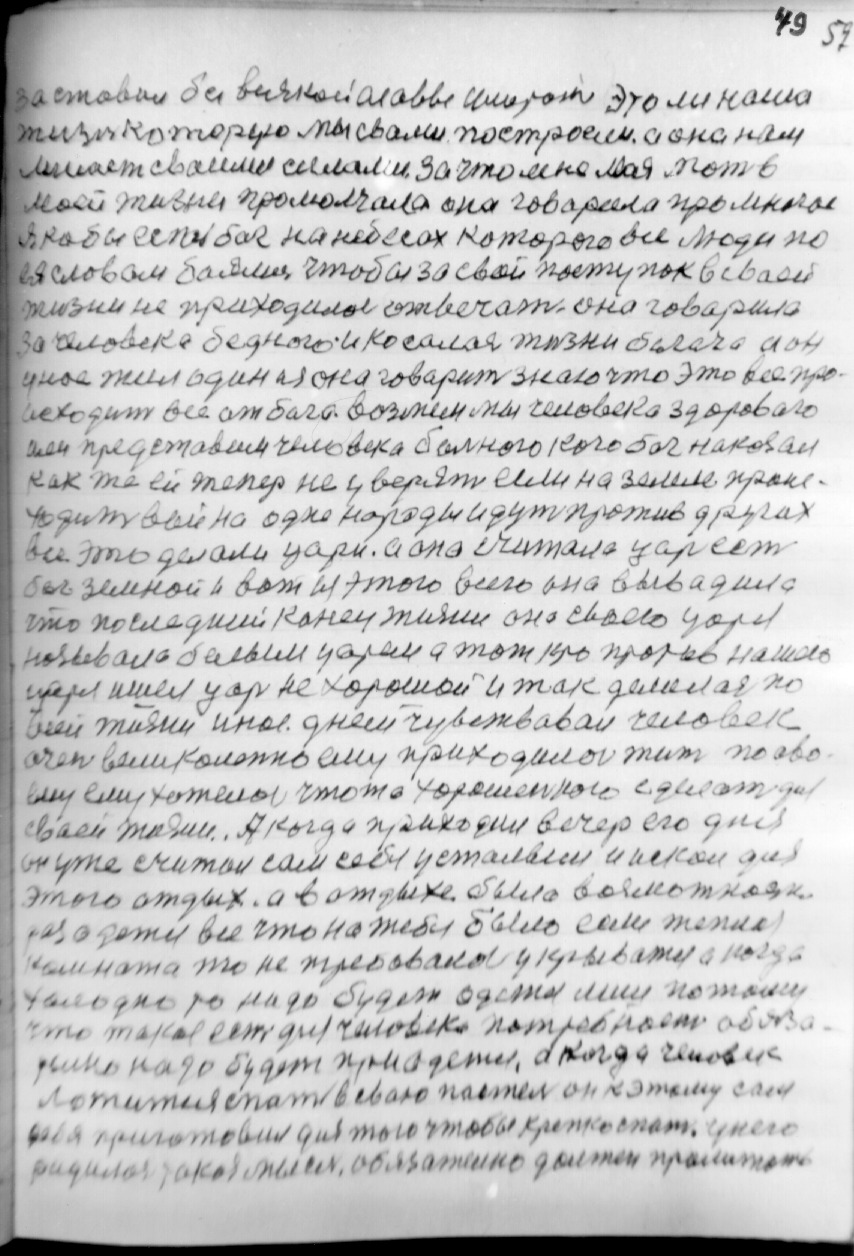 49 57
заставил без всякой славы умират Это ли наша
тизнь которую мы свами построели. а она нам
мешает своими силами. За что мне мая мать в
моей жизни промолчала она говарила про многое
якобы есть бог на небесах которого все люди по
ея словам баялись чтобы за свой поступок в сваей
жизни не приходилос отвечат. она говарила
за человека бедного и косалас жизни багача а он
иное жил один и я она говарит знаю что Это все про-
исходит все от бога возмем мы человека здорового
или представим человека балного кого бог наказал
как же ей тепер не уверят если на земле проис-
ходит война одне народы идут против других
все это делали цари. а она считала цар ест
бог земной и вот из этого всего она вывадила
что последний конец жизни она сваего царя
называла белым царем а тот кто против нашего
царя шел цар не хорошой и так делалая по
всей жизни иное. днем чувствавал человек
очен великолепно ему приходилос жит по сво-
ему ему хотелос что то хорошенкого сделат для
сваей жизни.. А когда приходил вечер его дня
он уже считал сам себя усталым и искал для
этого отдых. а в отдыхе. была возможнаяж.
раз одет и все что на тебя было если теплая
комната то не требовалос укрыватся а когда
халодно то надо будет одется или потому
что такая ест для человека потребност обяза-
телно надо будет приадется, а когда человек
ложится спат в сваю пастел он к этому сам
себя приготовил для того чтобы крепко спат. у него
радилас такая мысл. обязателно должен пралижат